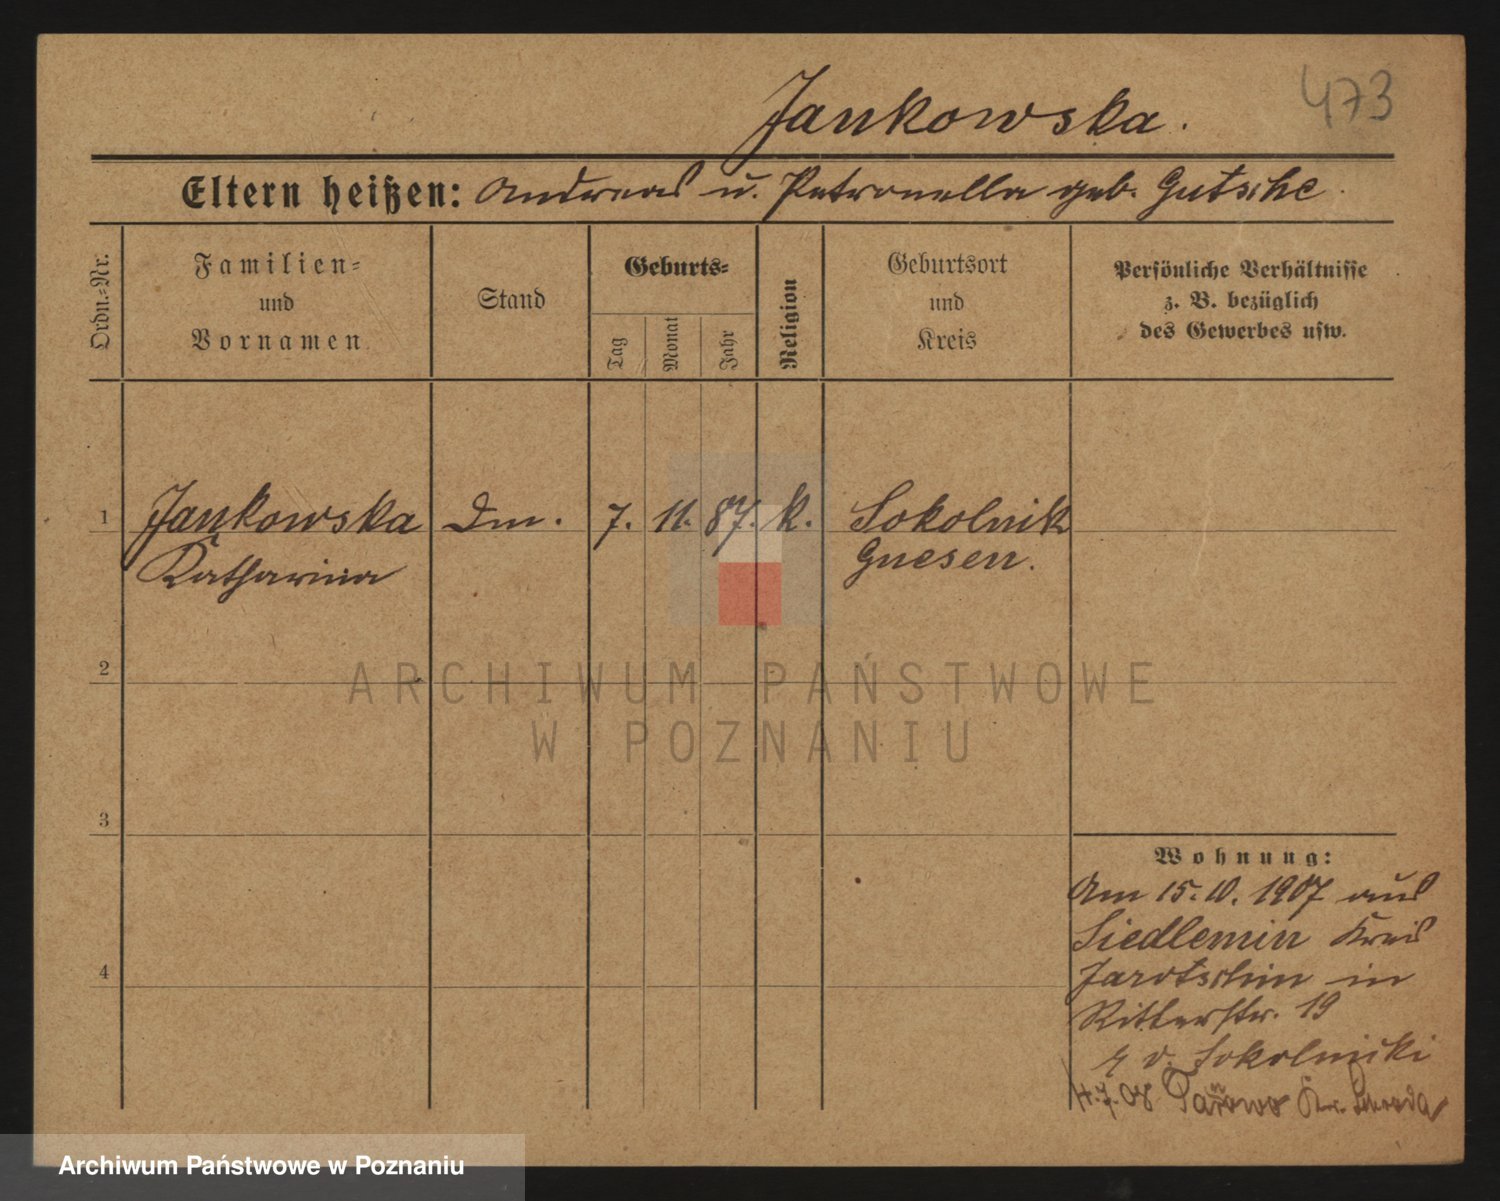 473
Jankowska.
Eltern heißen: Andreas u. Petronella geb. Gutsche.
Ordn.-Nr.
Familien-
und
Vornamen
Stand
Geburts-
Tag
Monat
Jahr
Religion
Geburtsort
und
Kreis
Persönliche Verhältnisse
z. B. bezüglich
des Gewerbes usw.
1 Jankowska Dm. 7. 11. 87. k. Sokolnik
Katharina Gnesen.
2
ARCHIWUM PAŃSTWOWE
W POZNANIU
3
Wohnung:
Am 15.10.1907 aus
Siedlemin Kreis
4
Jarotschin in
Ritterstr. 19
v. Sokolnicki
4.7.08 Kr. Schroda
Archiwum Państwowe w Poznaniu